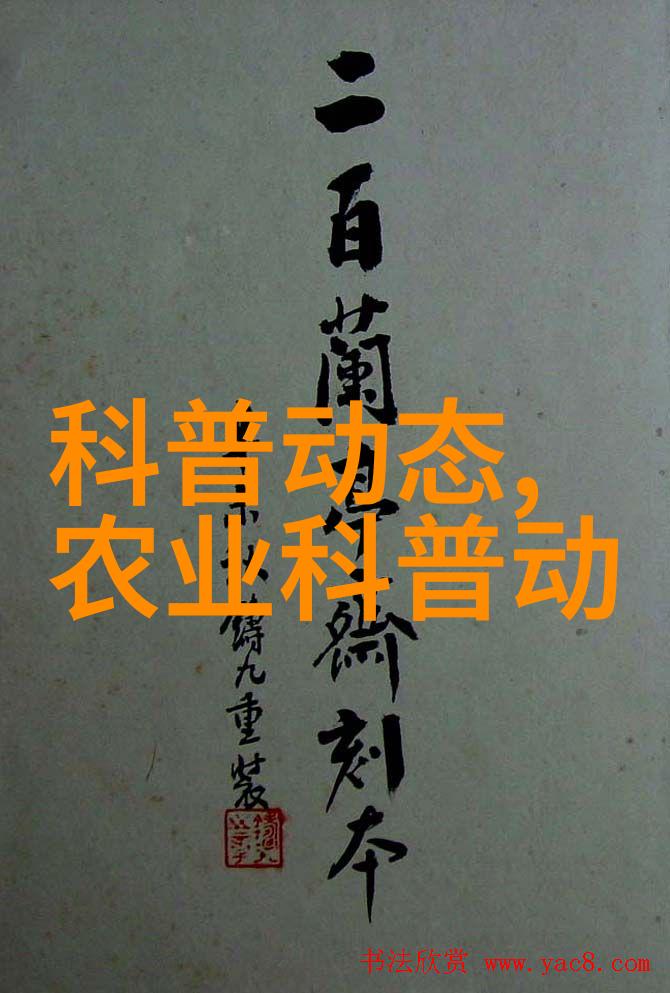 二百蘭亭齋刻本
鑄九重裝
科普动态,
农业科普动
书法欣赏 www.yac8.com